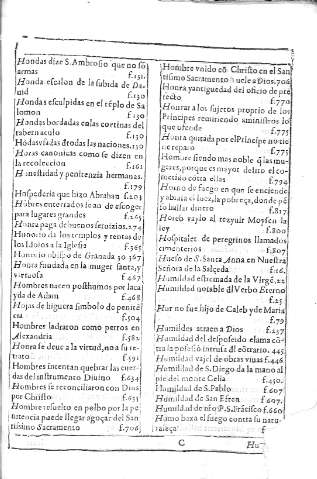 Hondas dize S. Ambrosio que no so
armas f.151.
Honda escalon de la subida de Da-
uid f.130
Hondas esculpidas en el tẽplo de Sa
lomon f.130
Hondas bordadas en las cortinas del
tabernaculo f.130
las naciones.130
Horas canonicas como se dizen en
la recoleccion f.161
Honestidad y penitencia hermanas.
f.179
Hospederia que hizo Abrahan f.203
Hõbres encerrados se an de escoger
para lugares grandes f.265
Honra paga de buenos 274
Honorio da los templos y rentas de
los Idolos a la Iglesia f.365
Honorio obispo de Granada 367
Honra fundada en la muger santa, y
virtuosa f.467
Hombres nacen posthumos por la ca
yda de Adam f.468
Hojas de higuera simbolo de penitẽ
cia f.504
Hombres ladraron como perros en
Alexandria f.582
Honra se deue a la virtud, no a su re-
trato f.591
Hombres intentan quebrar las cuer-
das del instrumento Diuino f.634
Hombres se reconciliaron con Dios
por Christo f.655
Hombre resuelto en poluo por la pe
nitencia puede llegar a gozar del San
tissimo Sacramento f.706
Hombre vnido cõ Christo en el San
tissimo Sacramento huele a Dios.706
Honra y antiguedad del oficio de pre
fecto f.770
Honrar a los sujetos proprio de los
Principes remitiendo
que ofende f.775
Honra quitada por el Principe no tie
ne reparo f.775
Hombre siendo mas noble q̃ las mu-
geres, porque es mayor delito el co-
metido contra ellos f.794
Horno de fuego en que se enciende
f.817.
Horeb vayle al Moysen la
ley f.800
Hospitales de peregrinos llamados
cimenterios f.807
Hueso de S. Santa Anna en Nuestra
Señora de la Salçeda
Humildad estremada de la Virgẽ.25
Humildad notable d̃l Verbo Eterno
f.25
Hur no fue hijo de Caleb y de Maria
f.79
Humildes atraen a Dios f.257
Humildad del desposado
445
Humildad vajel de obras viuas f.446
Humildad de S. Diego da la mano al
pie del monte Celia f.450.
Humildad de S. Pablo f.607
Humildad de San Esteu f.607.
Humildad de nr̃o P. S. Frãcisco f.660
Humo baxa el fuego contra su natu-
raleça f
C
Hu